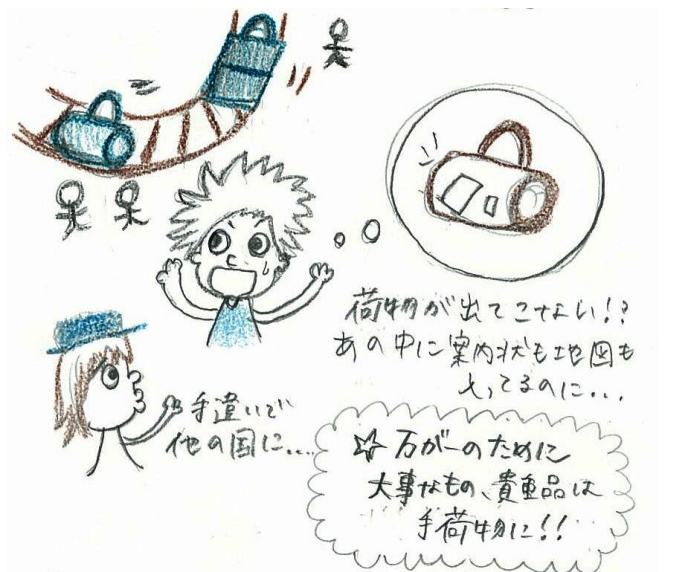 荷物が出てこない!?
あの中に案内状も地図も
入ってるのに...
手違いで
他の国に....
☆万が一のために
大事なもの、貴重品は
手荷物に!!